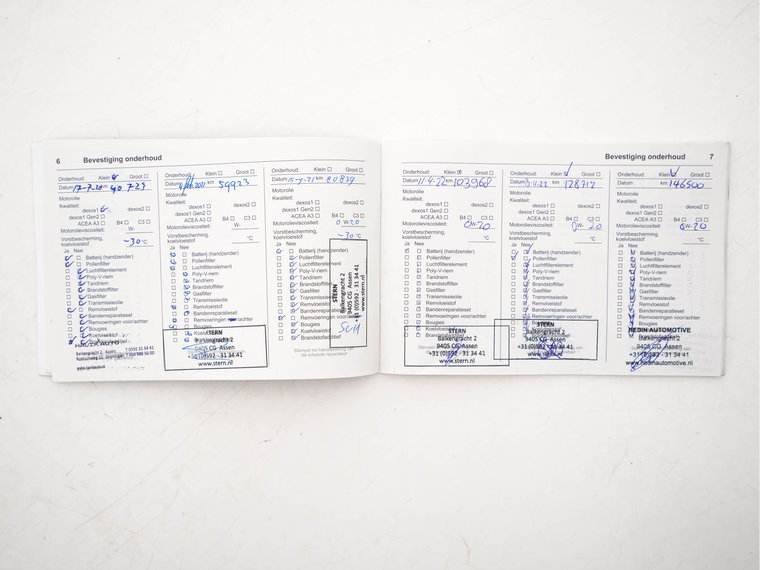 6 Bevestiging onderhoud
Onderhoud: Klein Groot
Datum 17-7-20 km 40.729
Motorolie
Kwaliteit:
dexos1 dexos2
dexos1 Gen2
ACEA A3 B4 C3
Motorolieviscositeit: W-
Vorstbescherming,
koelvloeistof -30 °C
Ja Nee
Batterij (handzender)
Pollenfilter
Luchtfilterelement
Poly-V-riem
Tandriem
Brandstoffilter
Gasfilter
Transmissieolie
Remvloeistof
Bandenreparatieset
Remvoeringen voor/achter
Bougies
Koelvloeistof
Onderhoud: Klein Groot
Datum 2021 km 59923
Motorolie
Kwaliteit:
dexos1 dexos2
dexos1 Gen2
ACEA A3 B4 C3
Motorolieviscositeit: W-
Vorstbescherming,
koelvloeistof °C
Ja Nee
Batterij (handzender)
Pollenfilter
Luchtfilterelement
Poly-V-riem
Tandriem
Brandstoffilter
Gasfilter
Transmissieolie
Remvloeistof
Bandenreparatieset
Remvoeringen voor/achter
Bougies
STERN
Balkengracht 2
9405 CG Assen
+31 (0)592 - 31 34 41
www.stern.nl
Onderhoud: Klein Groot
Datum km 80839
Motorolie
Kwaliteit:
dexos1 dexos2
dexos1 Gen2
ACEA A3 B4 C3
Motorolieviscositeit: 0 W-20
Vorstbescherming,
koelvloeistof -30 °C
Ja Nee
Batterij (handzender)
Pollenfilter
Luchtfilterelement
Poly-V-riem
Tandriem
Brandstoffilter
Gasfilter
Transmissieolie
Remvloeistof
Bandenreparatieset
Remvoeringen voor/achter
Bougies
Koelvloeistof
Brandstoffilter
STERN
Balkengracht 2
9405 CG Assen
+31 (0)592 - 31 34 41
www.stern.nl
Bevestiging onderhoud 7
Onderhoud: Klein Groot
Datum 11-4-22 km 103968
Motorolie
Kwaliteit:
dexos1 dexos2
dexos1 Gen2
ACEA A3 B4 C3
Motorolieviscositeit: 0W-20
Vorstbescherming,
koelvloeistof °C
Ja Nee
Batterij (handzender)
Pollenfilter
Luchtfilterelement
Poly-V-riem
Tandriem
Brandstoffilter
Gasfilter
Transmissieolie
Remvloeistof
Bandenreparatieset
Remvoeringen voor/achter
Bougies
Koelvloeistof
STERN
Balkengracht 2
9405 CG Assen
+31 (0)592 - 31 34 41
www.stern.nl
Onderhoud: Klein Groot
Datum 8-11-22 km 128712
Motorolie
Kwaliteit:
dexos1 dexos2
dexos1 Gen2
ACEA A3 B4 C3
Motorolieviscositeit: 0W-20
Vorstbescherming,
koelvloeistof °C
Ja Nee
Batterij (handzender)
Pollenfilter
Luchtfilterelement
Poly-V-riem
Tandriem
Brandstoffilter
Gasfilter
Transmissieolie
Remvloeistof
Bandenreparatieset
Remvoeringen voor/achter
STERN
Balkengracht 2
9405 CG Assen
+31 (0)592 - 31 34 41
www.stern.nl
Onderhoud: Klein Groot
Datum km 146500
Motorolie
Kwaliteit:
dexos1 dexos2
dexos1 Gen2
ACEA A3 B4 C3
Motorolieviscositeit: 0W-20
Vorstbescherming,
koelvloeistof °C
Ja Nee
Batterij (handzender)
Pollenfilter
Luchtfilterelement
Poly-V-riem
Tandriem
Brandstoffilter
Gasfilter
Transmissieolie
Remvloeistof
Bandenreparatieset
Remvoeringen voor/achter
HEDIN AUTOMOTIVE
Balkengracht 2
9405 CG Assen
+31 (0)592 - 31 34 41
www.hedinautomotive.nl